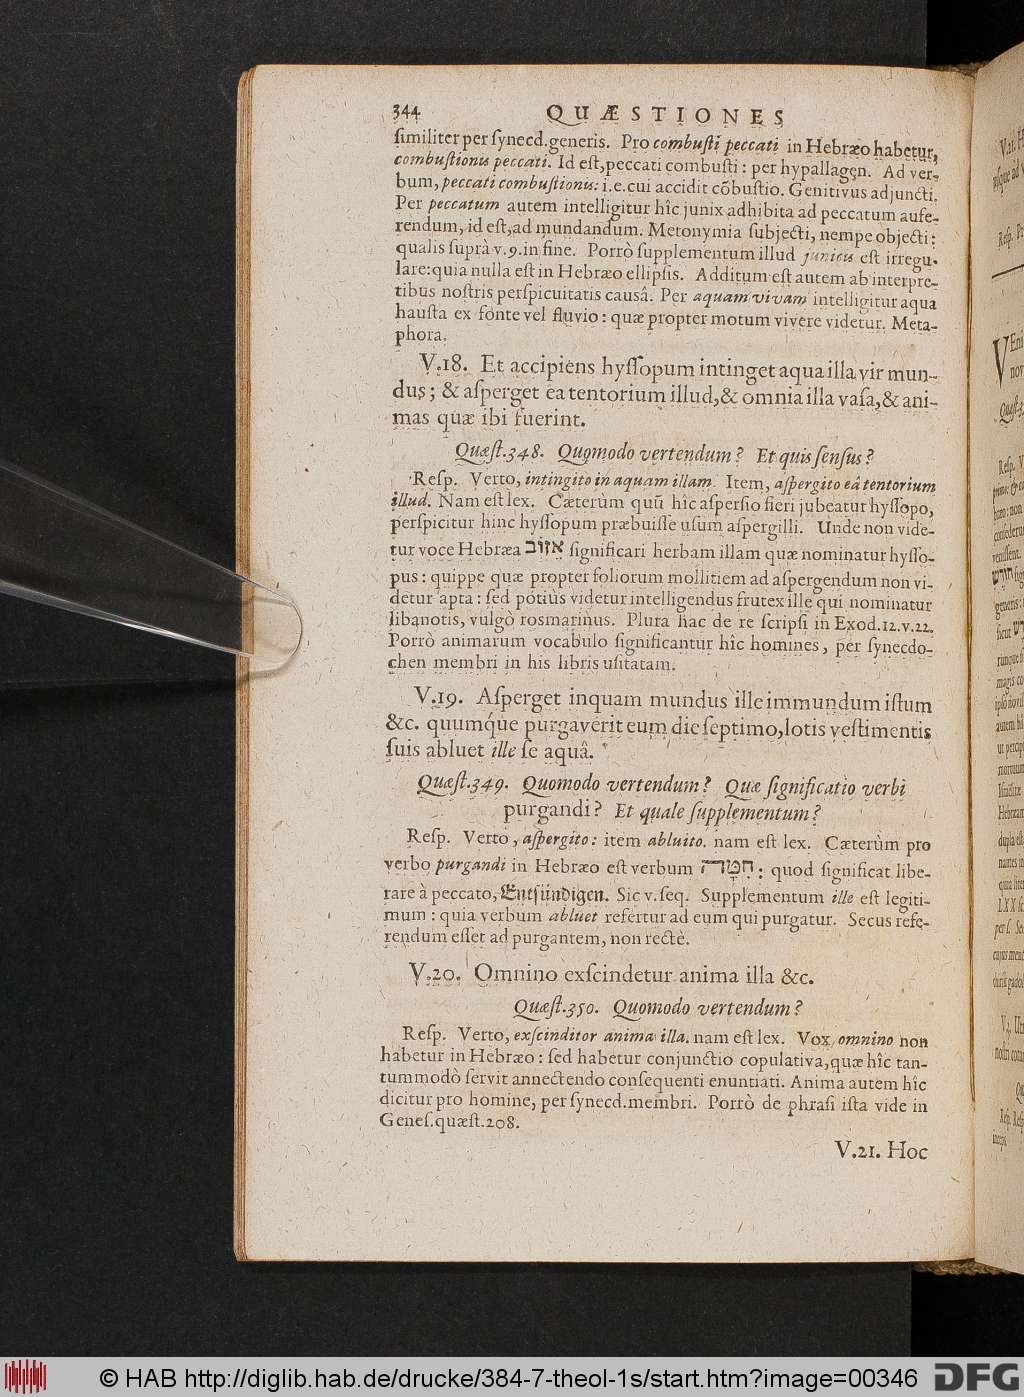 344 QUÆSTIONES
ſimiliter per ſynecd.generis. Pro combuſti peccati in Hebræo habetur,
combuſtionis peccati. Id eſt,peccati combuſti: per hypallagen. Ad ver-
bum, peccati combuſtionis: i.e.cui accidit cōbuſtio. Genitivus adjuncti.
Per peccatum autem intelligitur hîc junix adhibita ad peccatum aufe-
rendum, id eſt,ad mundandum. Metonymia ſubjecti, nempe objecti:
qualis ſuprà v.9.in fine. Porrò ſupplementum illud junicis eſt irregu-
lare:quia nulla eſt in Hebræo ellipſis. Additum eſt autem ab interpre-
tibus noſtris perſpicuitatis causâ. Per aquam vivam intelligitur aqua
hauſta ex fonte vel fluvio: quæ propter motum vivere videtur. Meta-
phora.
V.18. Et accipiens hyſſopum intinget aqua illa vir mun-
dus; & aſperget ea tentorium illud,& omnia illa vaſa,& ani-
mas quæ ibi fuerint.
Quæſt.348. Quomodo vertendum? Et quis ſenſus?
Reſp. Verto, intingito in aquam illam. Item, aſpergito eâ tentorium
illud. Nam eſt lex. Cæterùm quū hîc aſperſio fieri jubeatur hyſſopo,
perſpicitur hinc hyſſopum præbuiſſe uſum aſpergilli. Unde non vide-
tur voce Hebræa אזוב ſignificari herbam illam quæ nominatur hyſſo-
pus: quippe quæ propter foliorum mollitiem ad aſpergendum non vi-
detur apta: ſed potiùs videtur intelligendus frutex ille qui nominatur
libanotis, vulgò rosmarinus. Plura hac de re ſcripſi in Exod.12.v.22.
Porrò animarum vocabulo ſignificantur hîc homines, per ſynecdo-
chen membri in his libris uſitatam.
V.19. Aſperget inquam mundus ille immundum iſtum
&c. quumq́ue purgaverit eum die ſeptimo,lotis veſtimentis
ſuis abluet ille ſe aquâ.
Quæſt.349. Quomodo vertendum? Quæ ſignificatio verbi
purgandi? Et quale ſupplementum?
Reſp. Verto, aſpergito: item abluito. nam eſt lex. Cæterùm pro
verbo purgandi in Hebræo eſt verbum חִטָּה: quod ſignificat libe-
rare à peccato, Entſündigen. Sic v.ſeq. Supplementum ille eſt legiti-
mum: quia verbum abluet refertur ad eum qui purgatur. Secus refe-
rendum eſſet ad purgantem, non rectè.
V.20. Omnino exſcindetur anima illa &c.
Quæſt.350. Quomodo vertendum?
Reſp. Verto, exſcinditor anima illa. nam eſt lex. Vox omnino non
habetur in Hebræo: ſed habetur conjunctio copulativa,quæ hîc tan-
tummodò ſervit annectendo conſequenti enuntiati. Anima autem hîc
dicitur pro homine, per ſynecd.membri. Porrò de phraſi iſta vide in
Geneſ.quæſt.208.
V.21. Hoc
© HAB http://diglib.hab.de/drucke/384-7-theol-1s/start.htm?image=00346
DFG